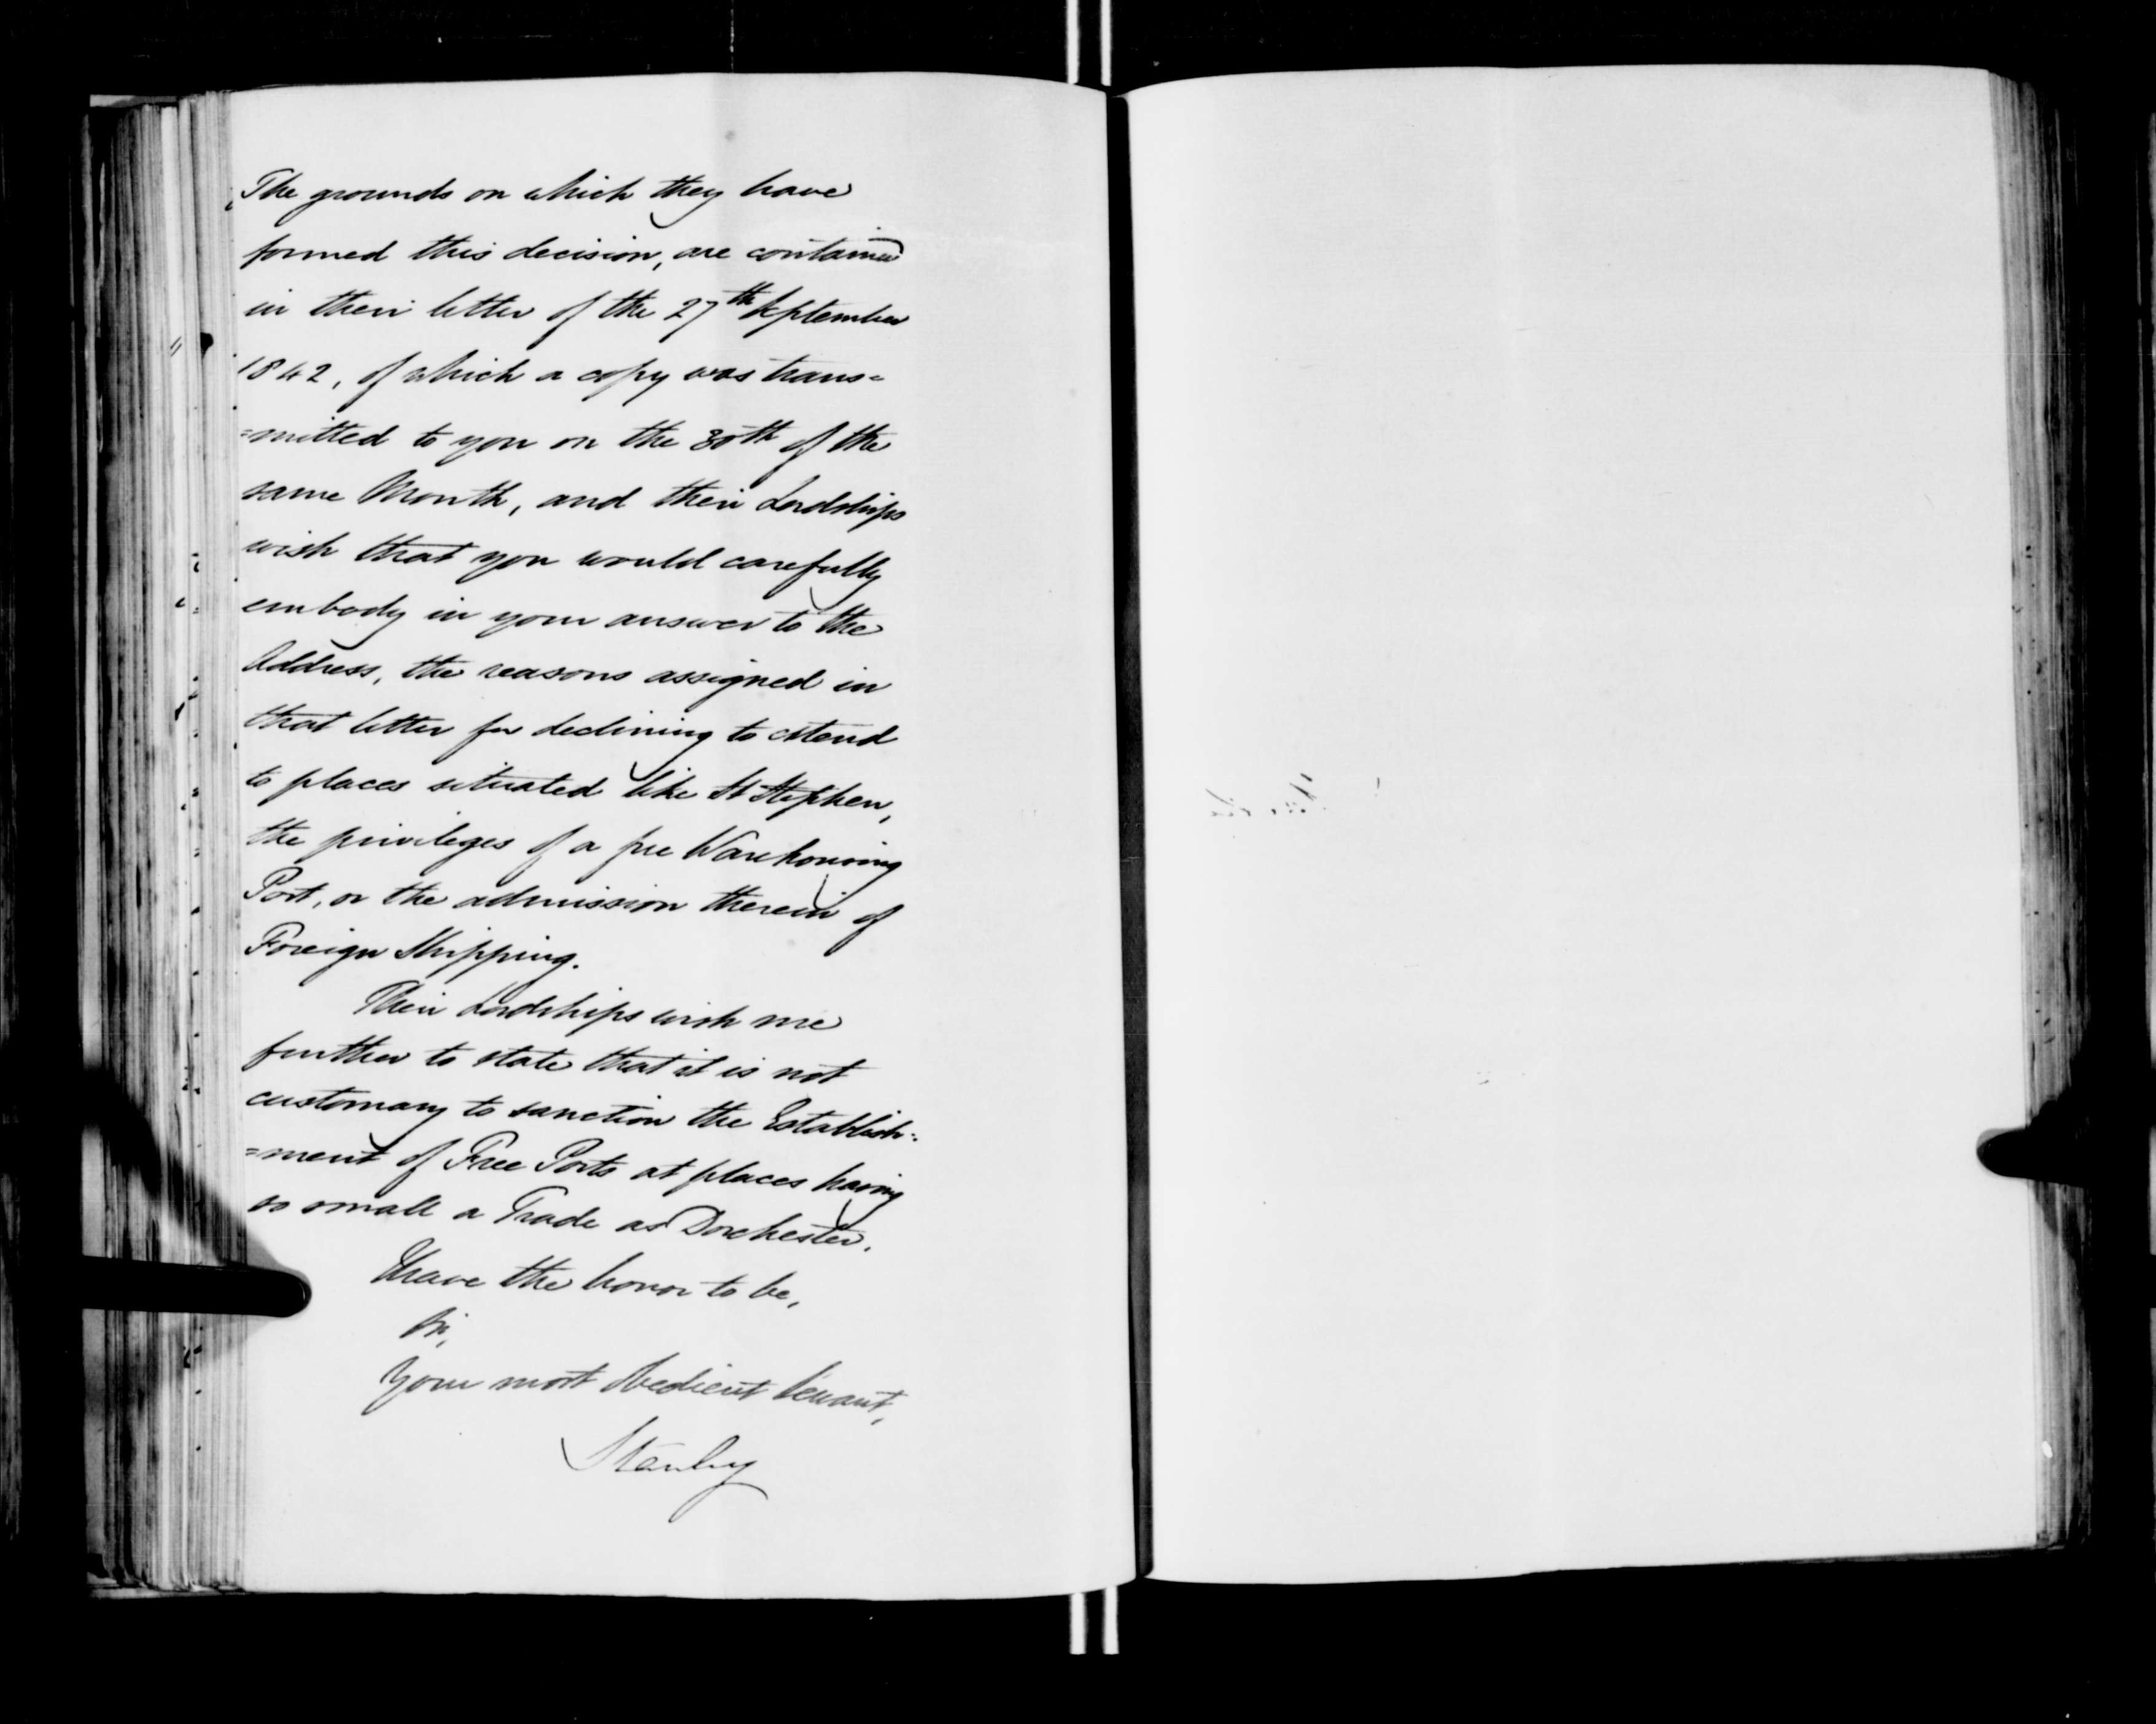 The grounds on which they have
formed this decision, are contained
in their letter of the 27th September
1842, of which a copy was trans=
=mitted to you on the 30th of the
same Month, and their Lordships
wish that you would carefully
embody in your answer to the
Address, the reasons assigned in
that letter for declining to extend
to places situated like St Stephen,
the privileges of a free Warehousing
Port, or the admission therein of
Foreign Shipping.
Their Lordships wish me
further to state that it is not
customary to sanction the Establish=
=ment of Free Ports at places having
so small a Trade as Dorchester.
I have the honor to be,
Sir,
Your most obedient Servant,
Stanley